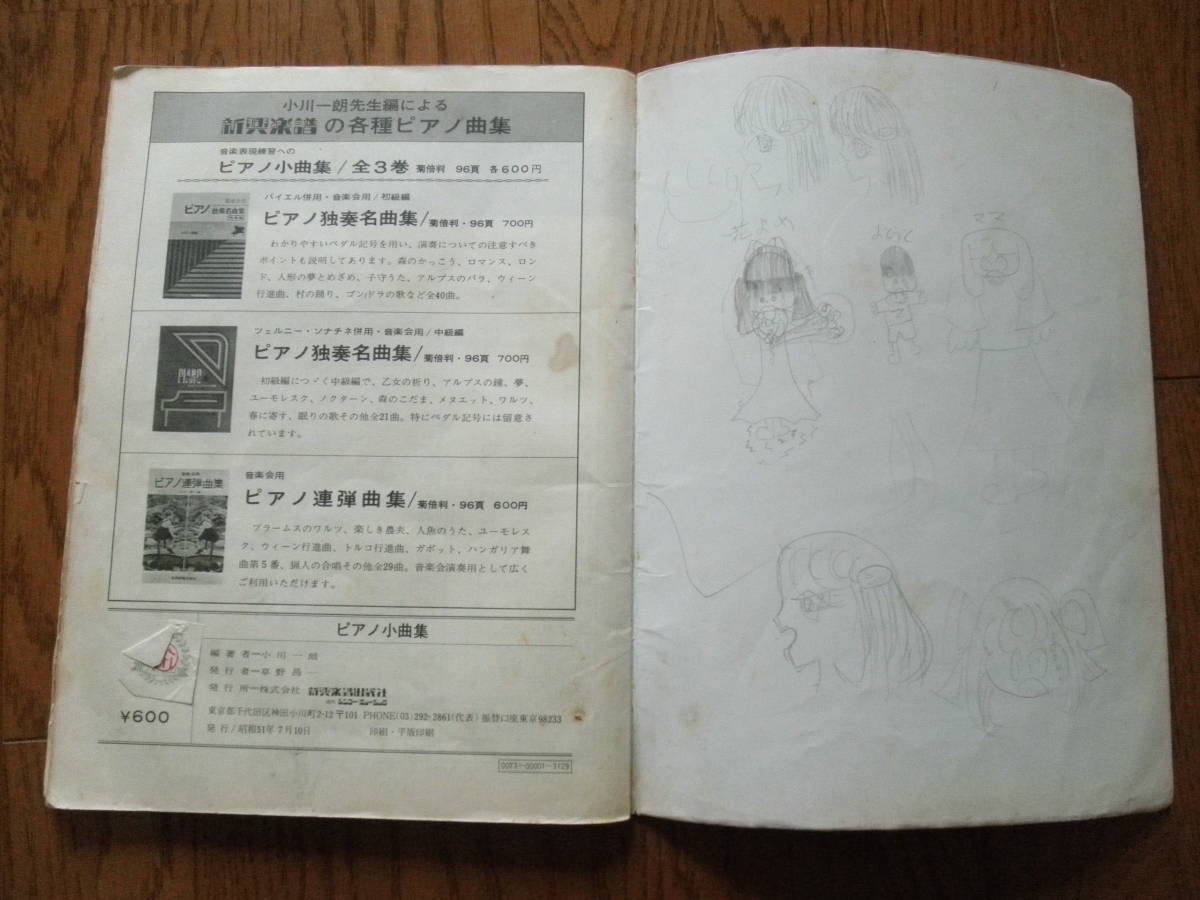 小川一朗先生編による
新興楽譜の各種ピアノ曲集
音楽表現練習への
ピアノ小曲集/全3巻 菊倍判 96頁 各600円
バイエル併用・音楽会用/初級編
ピアノ独奏名曲集/菊倍判・96頁 700円
わかりやすいペダル記号を用い、演奏についての注意すべき
ポイントも説明してあります。森のかっこう、ロマンス、ロン
ド、人形の夢とめざめ、子守うた、アルプスのバラ、ウィーン
行進曲、村の踊り、ゴンドラの歌など全40曲。
ツェルニー・ソナチネ併用・音楽会用/中級編
ピアノ独奏名曲集/菊倍判・96頁 700円
初級編につゞく中級編で、乙女の祈り、アルプスの鐘、夢、
ユーモレスク、ノクターン、森のこだま、メヌエット、ワルツ、
春に寄す、眠りの歌その他全21曲。特にペダル記号には留意さ
れています。
ピアノ連弾曲集
音楽会用
ピアノ連弾曲集/菊倍判・96頁 600円
ブラームスのワルツ、楽しき農夫、人魚のうた、ユーモレス
ク、ウィーン行進曲、トルコ行進曲、ガボット、ハンガリア舞
曲第5番、猟人の合唱その他全29曲。音楽会演奏用として広く
ご利用いただけます。
ピアノ小曲集
編著者―小川一朗
発行者―草野昌一
発行所―株式会社 新興楽譜出版社
東京都千代田区神田小川町2-12〒101 PHONE(03)292-2861(代表)振替口座東京98233
発行/昭和51年7月10日 印刷・平版印刷
¥600
0073-00001-3129
花よめ
ママ